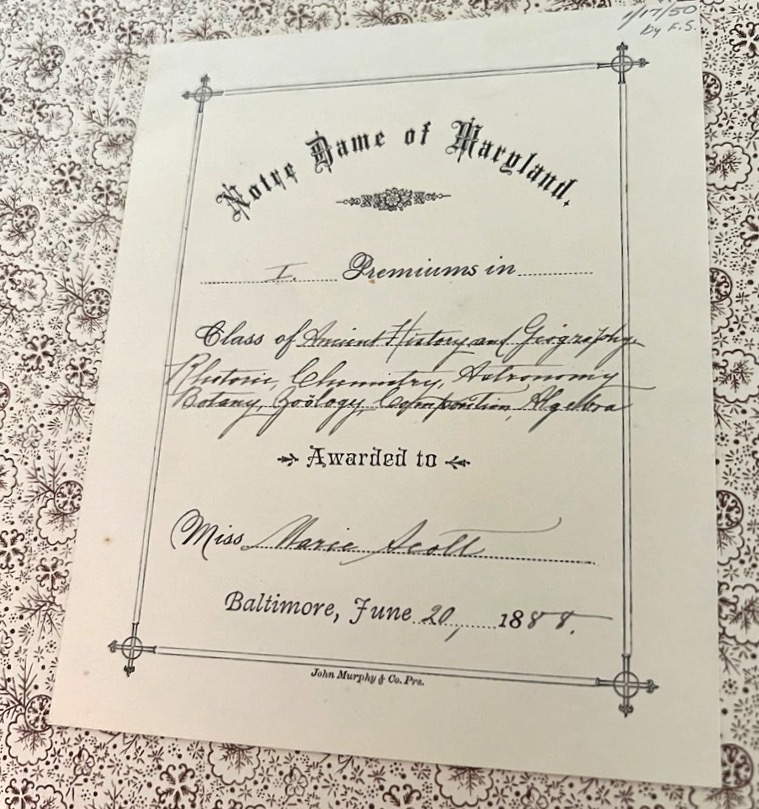 1/17/50
by F.S.
Notre Dame of Maryland.
I. Premiums in
Class of Ancient History and Geography,
Rhetoric, Chemistry, Astronomy
Botany, Zoölogy, Composition, Algebra
Awarded to
Miss Marie Scott
Baltimore, June 20, 1888.
John Murphy & Co. Prs.